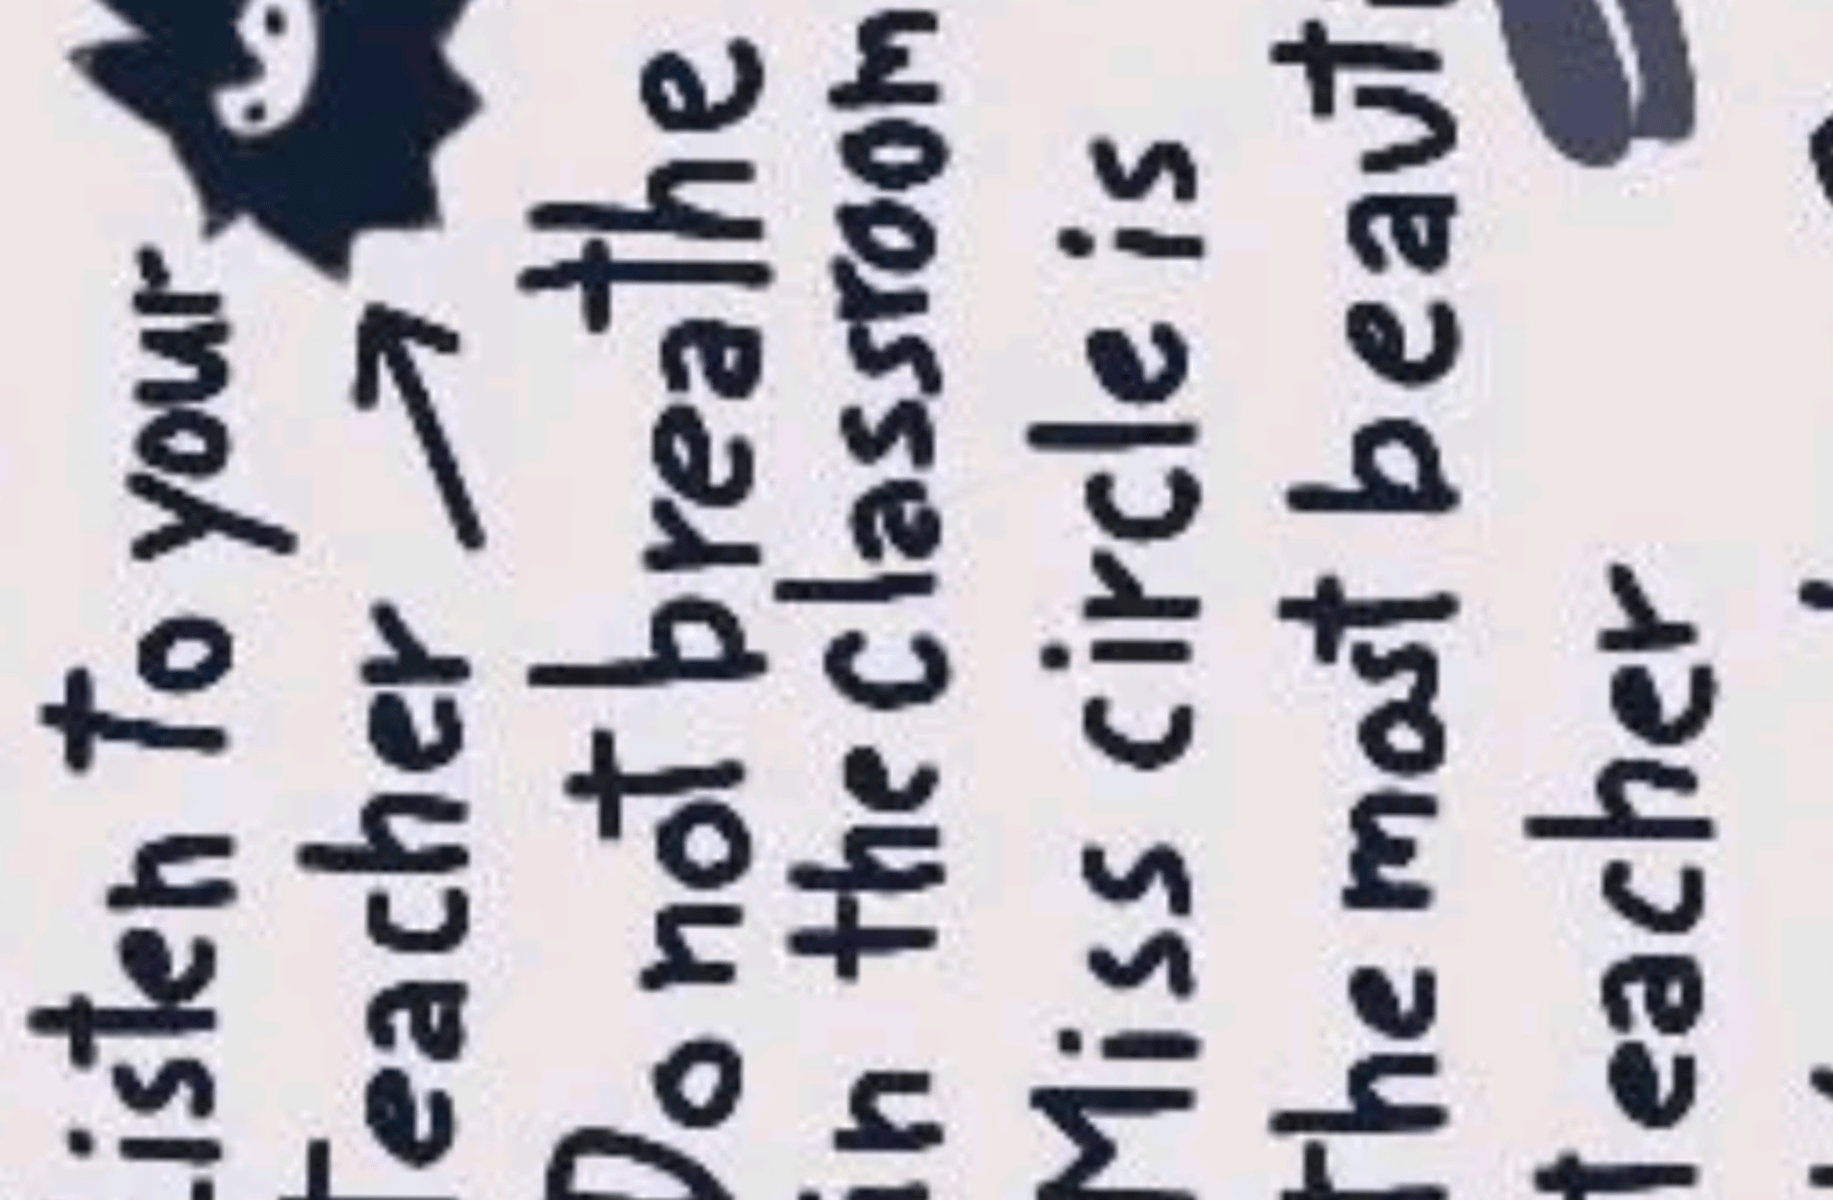 Listen to your
teacher
Do not breathe
in the classroom
Miss circle is
the most beauti
teacher